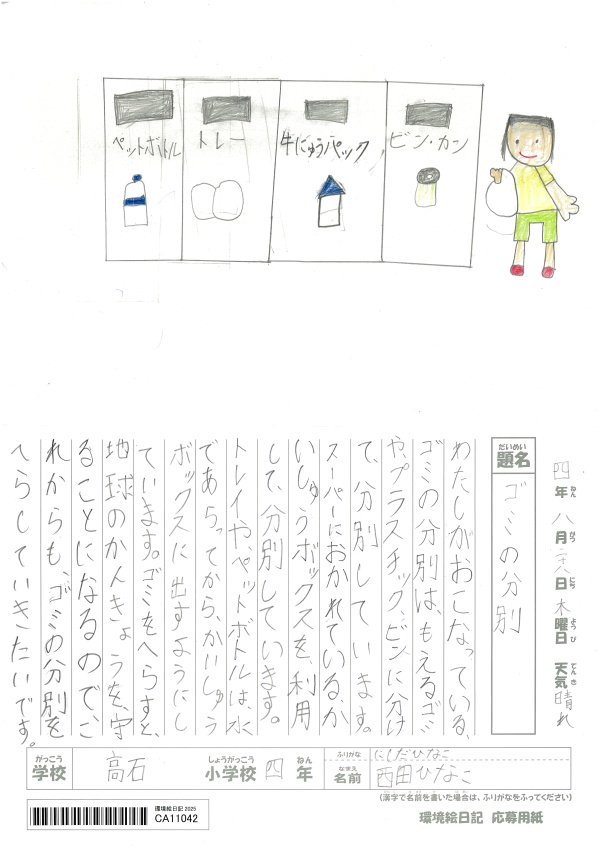 ペットボトル
トレー
牛にゅうパック
ビン・カン
四年 八月二十八日 木曜日 天気 晴れ
ねん がつ にち ようび てんき
だいめい
題名
ゴミの分別
わたしがおこなっている、
ゴミの分別は、もえるゴミ
や、プラスチック、ビンに分け
て、分別しています。
スーパーにおかれているか
いしゅうボックスを、利用
して、分別しています。
トレイや、ペットボトルは、水
であらってから、かいしゅう
ボックスに出すようにし
ています。ゴミをへらすと、
地球のかんきょうを、守
ることになるので、こ
れからも、ゴミの分別を
へらしていきたいです。
がっこう しょうがっこう ねん
学校 高石 小学校 四年
ふりがな にしだひなこ
なまえ
名前 西田ひなこ
(漢字で名前を書いた場合は、ふりがなをふってください)
環境絵日記 2025
CA11042
環境絵日記 応募用紙